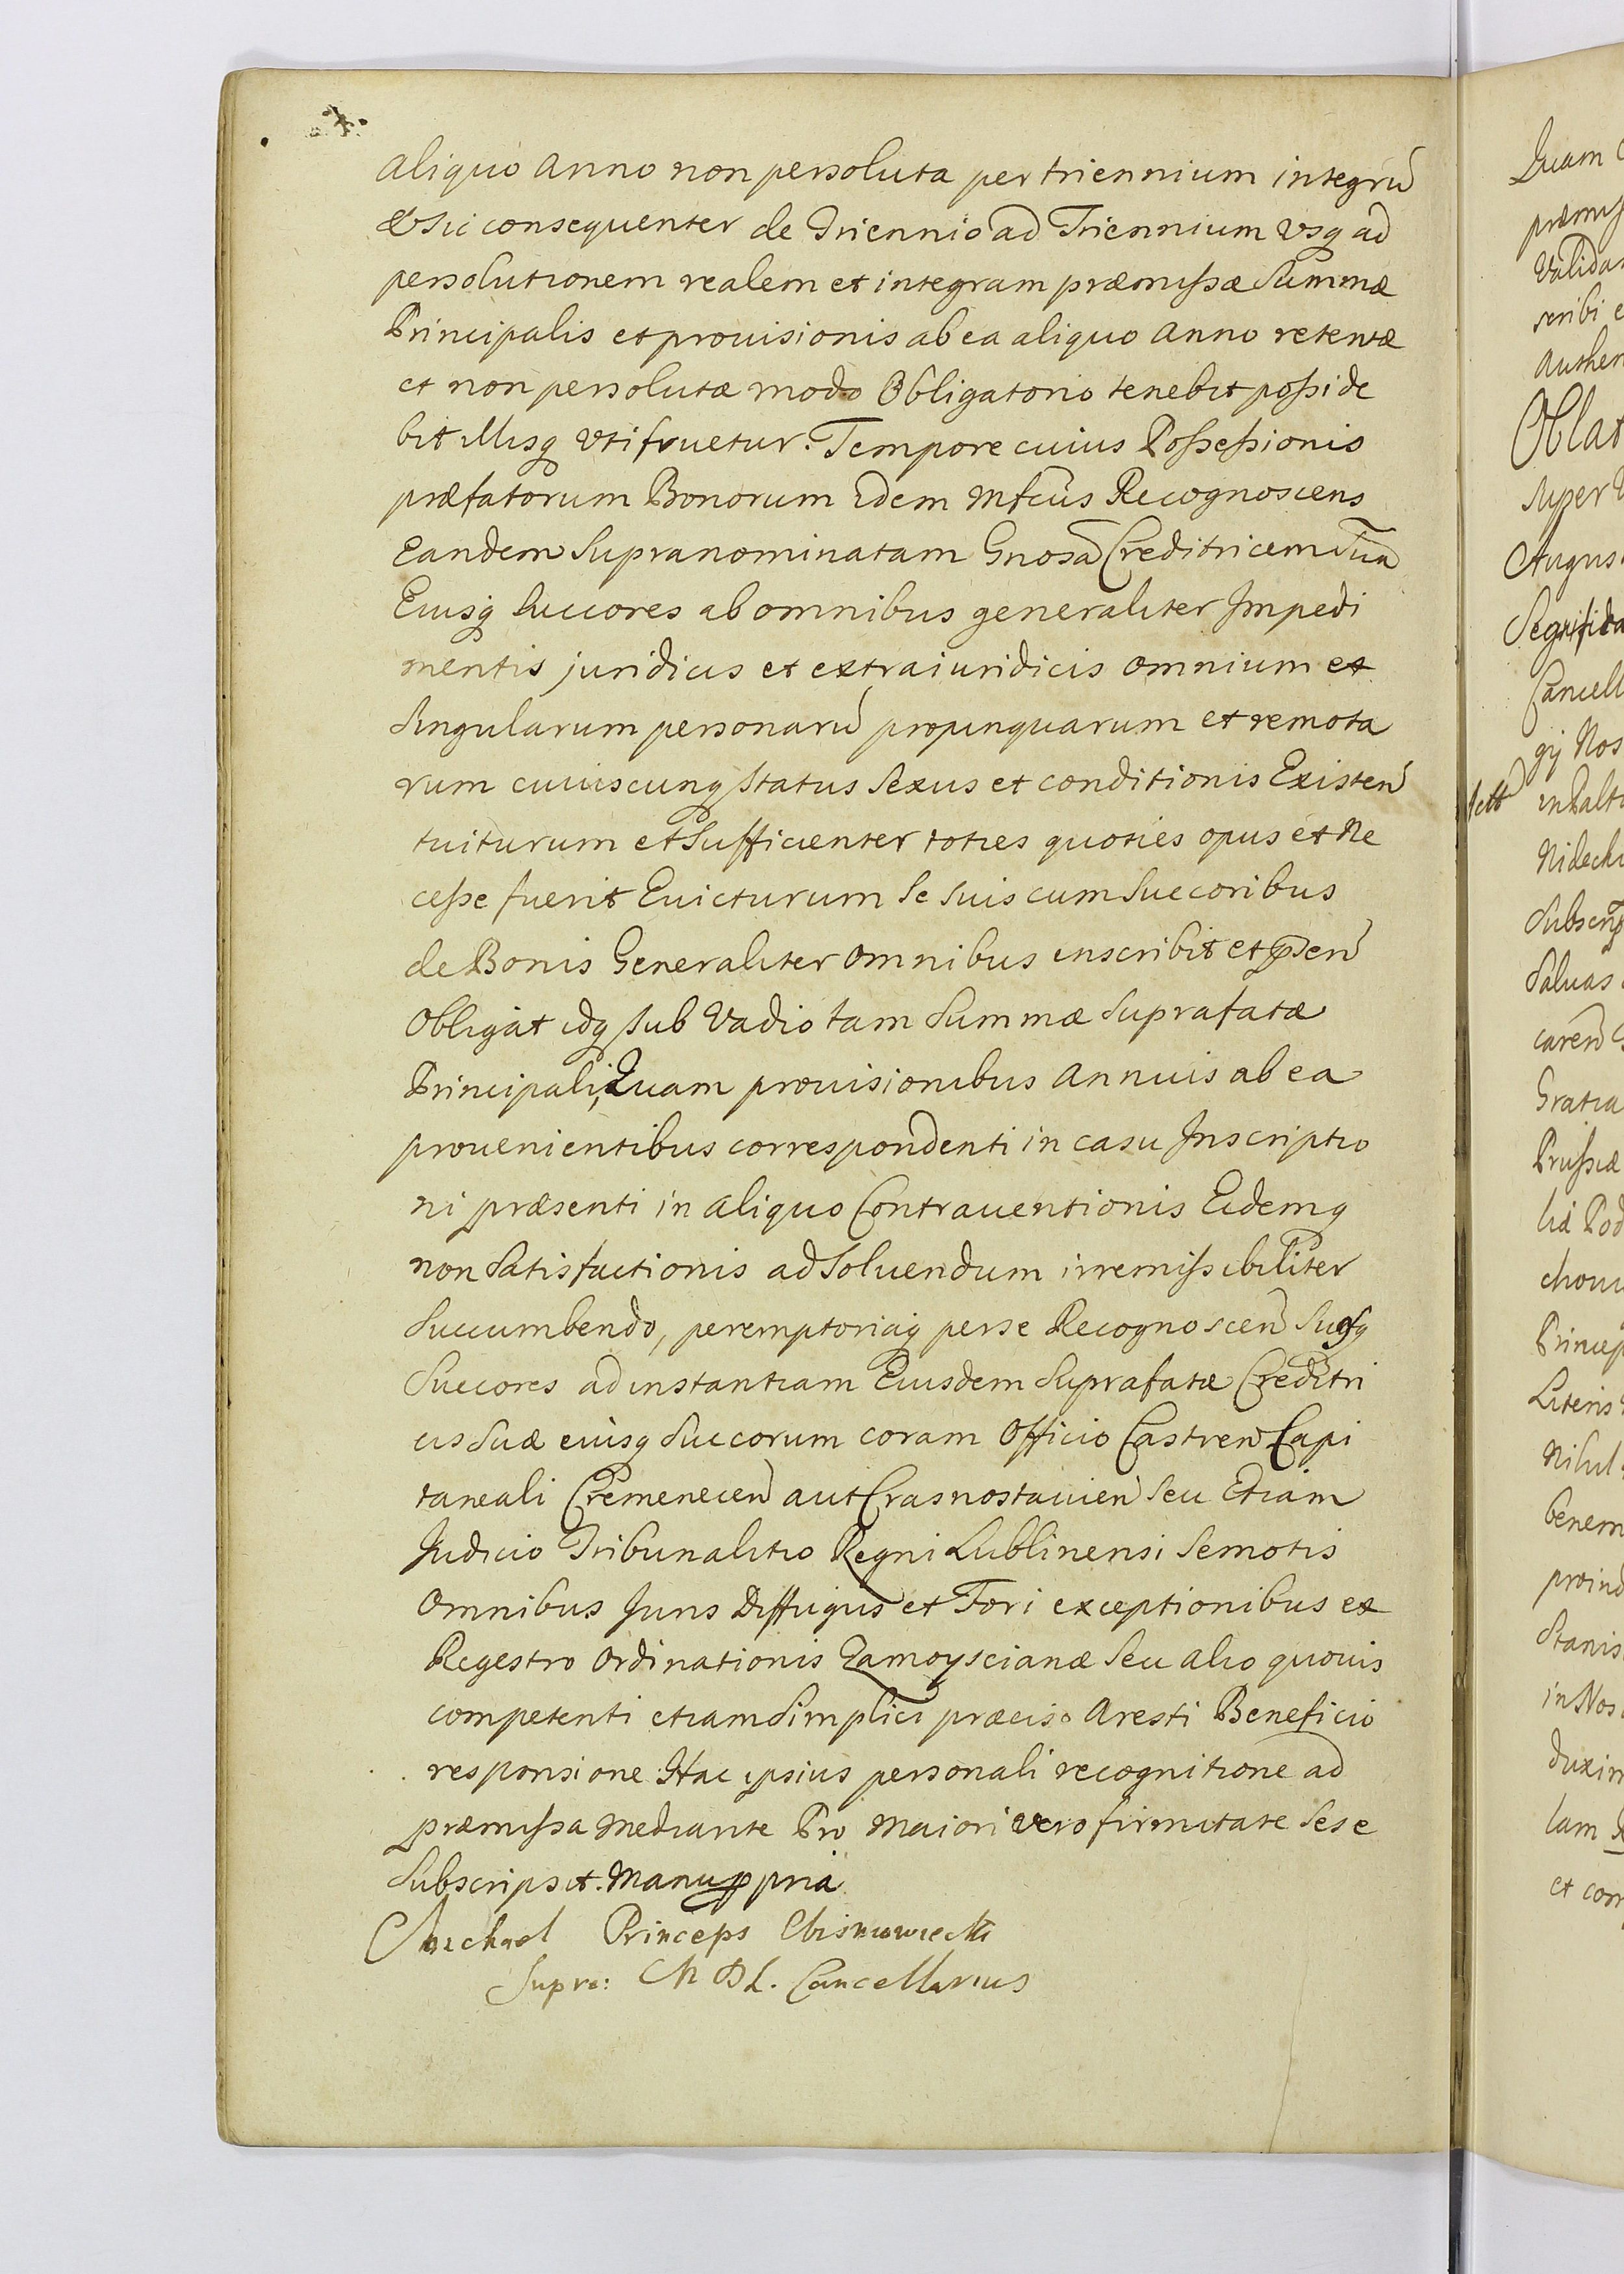 aliquo anno non persoluta per triennium integrũ
& sic consequenter de Triennio ad Triennium vsq ad
persolutionem realem et integram præmissæ Summæ
Principalis et prouisionis ab ea aliquo anno retentæ
et non persolutæ modo Obligatorio tenebit posside
bit illisq vti fruetur. Tempore cuius Possessionis
præfatorum Bonorum Idem Mfcus Recognoscens
Eandem Supranominatam Gnosam Creditricem Suã
Eiusq Succores ab omnibus generaliter Impedi
mentis juridicis et extraiuridicis omnium et
Singularum personarũ propinquarum et remota
rum cuiuscunq status Sexus et conditionis Existen
tuiturum et Sufficienter toties quoties opus et Ne
cesse fuerit Euicturum Se Suis cum Succoribus
de Bonis Generaliter omnibus inscribit et psen
Obligat idq sub Vadio tam Summæ Suprafatæ
Principali, Quam prouisionibus Annuis ab ea
prouenientibus correspondenti in casu Inscriptio
ni præsenti in aliquo Contrauentionis Eidemq
non Satisfactionis ad Soluendum irremissibiliter
Succumbendo, peremptoriaq per se Recognoscen Suosq
Succores ad instantiam Eiusdem Suprafatæ Creditri
cis Suæ eiusq Succorum coram Officio Castren Capi
taneali Cremenecen aut Crasnostauien Seu Etiam
Judicio Tribunalitio Regni Lublinensi Semotis
Omnibus Juris Diffugiis et Fori exceptionibus ex
Regestro Ordinationis Zamoyscianæ Seu alio quouis
competenti etiam Simplici præciso Aresti Beneficio
responsione Hac ipsius personali recognitione ad
præmissa mediante Pro Maiori vero firmitate Sese
Subscripsit. Manu pp pria
Michael Princeps Wisniowiecki
Supre: M D L. Cancellarius
Quam
Valida
scribi
Oblat
super
Augus
Cancell
gij Nos
Saluas
Gratia
Prussiæ
Princep
Literis
Nihil
benem
proind
Stanis
in Nos
duxim
lam
et con